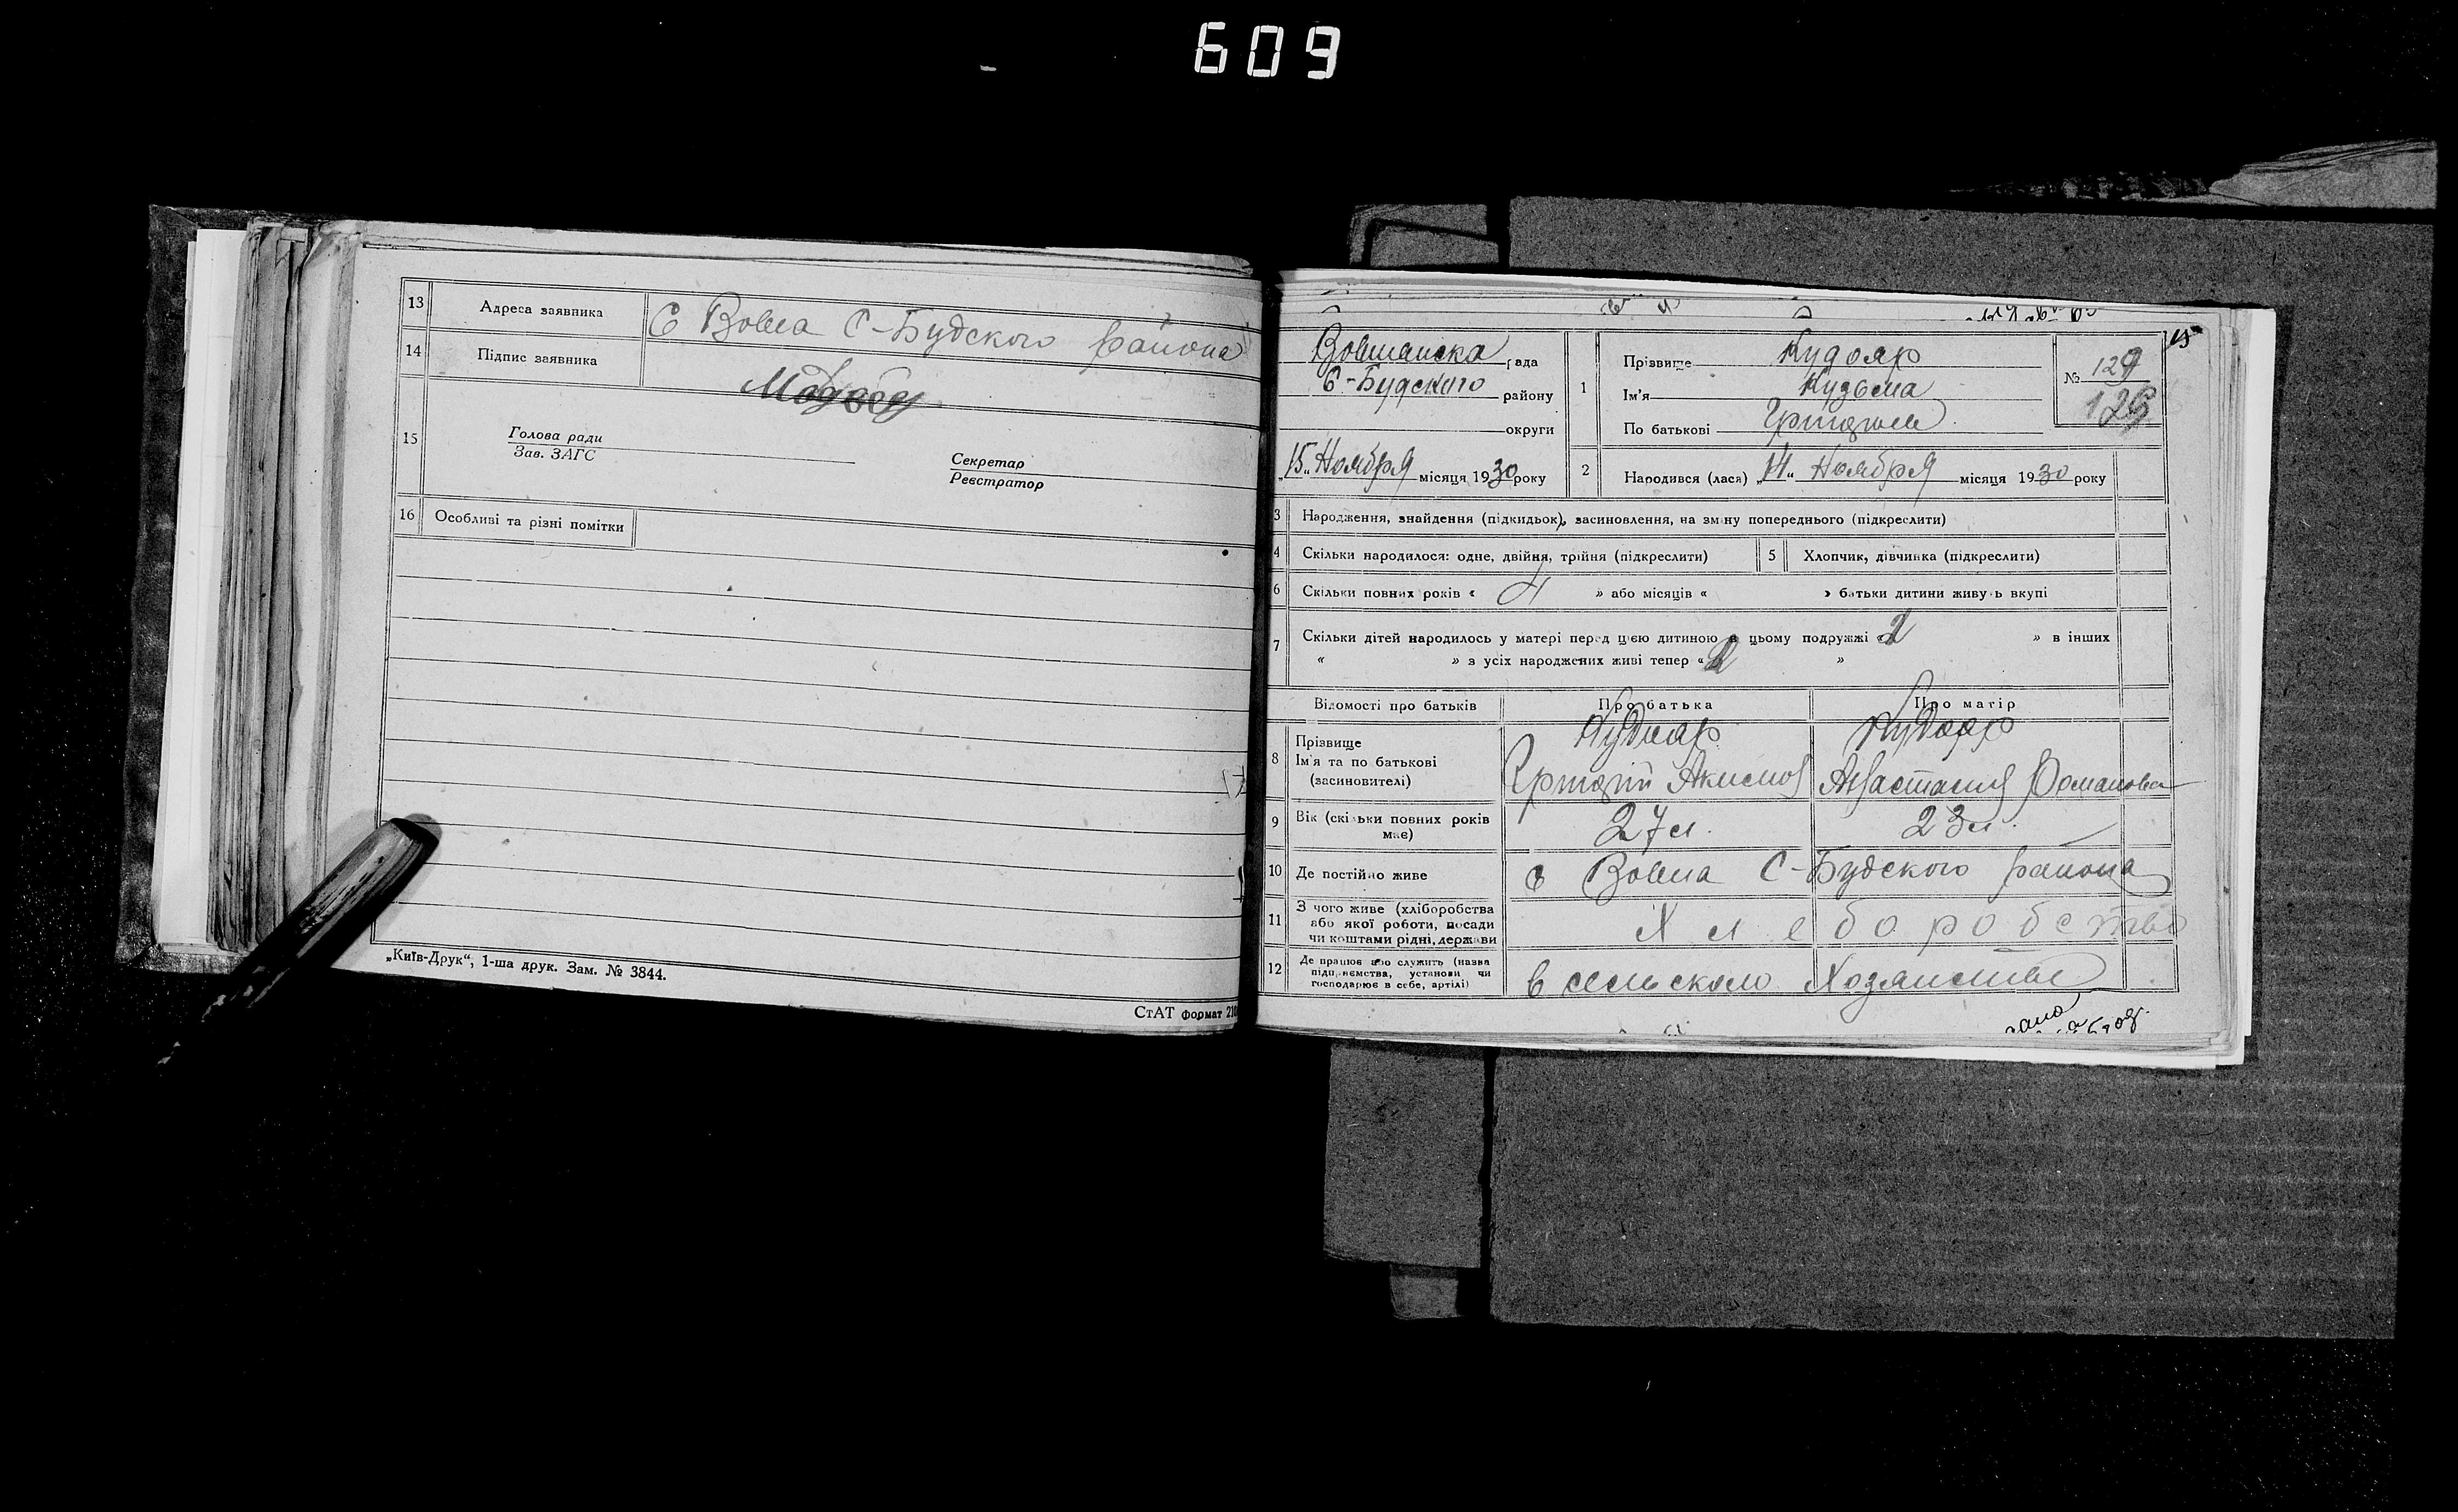 609
13 Адреса заявника С Вовна С-Будского района
14 Підпис заявника
15 Голова ради
Зав. ЗАГС
Секретар
Реєстратор
16 Особливі та різні помітки
„Київ-Друк“, 1-ша друк. Зам. № 3844.
СтАТ формат 210
15
рада
С-Будского району
округи
„15„ Ноября місяця 1930 року
1 Прізвище Кудояр
Ім'я Кузьма
По батькові
№ 129
126
2 Народився (лася) „14„ Ноября місяця 1930 року
3 Народження, знайдення (підкидьок), засиновлення, на зміну попереднього (підкреслити)
4 Скільки народилося: одне, двійня, трійня (підкреслити)
5 Хлопчик, дівчинка (підкреслити)
6 Скільки повних років « 4 » або місяців « » батьки дитини живуть вкупі
7 Скільки дітей народилось у матері перед цією дитиною в цьому подружжі « 2 » в інших
« » з усіх народжених живі тепер « 2 »
Відомості про батьків Про батька Про матір
8 Прізвище Кудояр Кудояр
Ім'я та по батькові
(засиновителі) Акимов Анастасия Романовна
9 Вік (скільки повних років
має) 27 л. 23 л.
10 Де постійно живе с Вовна С-Будского района
11 З чого живе (хліборобства
або якої роботи, посади
чи коштами рідні, держави Хлеборобство
12 Де працює або служить (назва
підприємства, установи чи
господарює в себе, артілі) в сельском хозяистве